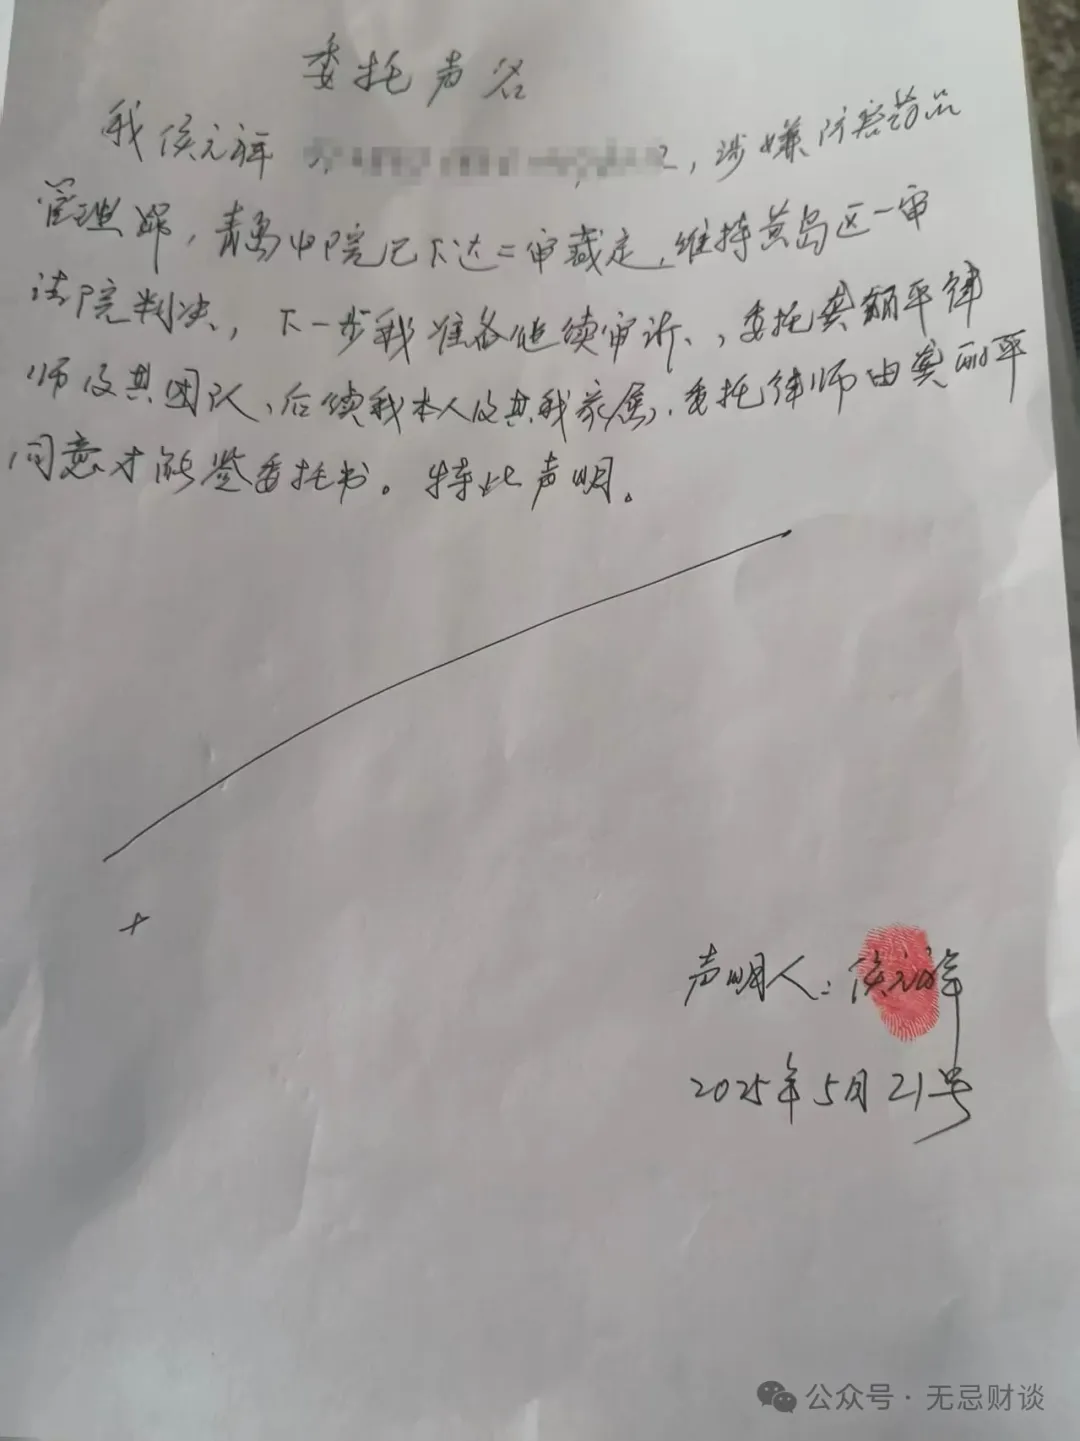 委托声名
我侯元祥 ，涉嫌防害药品
管理罪，青岛中院已下达二审裁定，维持黄岛区一审
法院判决，下一步我准备继续审诉、，委托龚丽平律
师及其团队、后续我本人及其我家属，委托律师由龚丽平
同意才能签委托书。特此声明。
声明人：侯元祥
2025年5月21号
公众号·无忌财谈